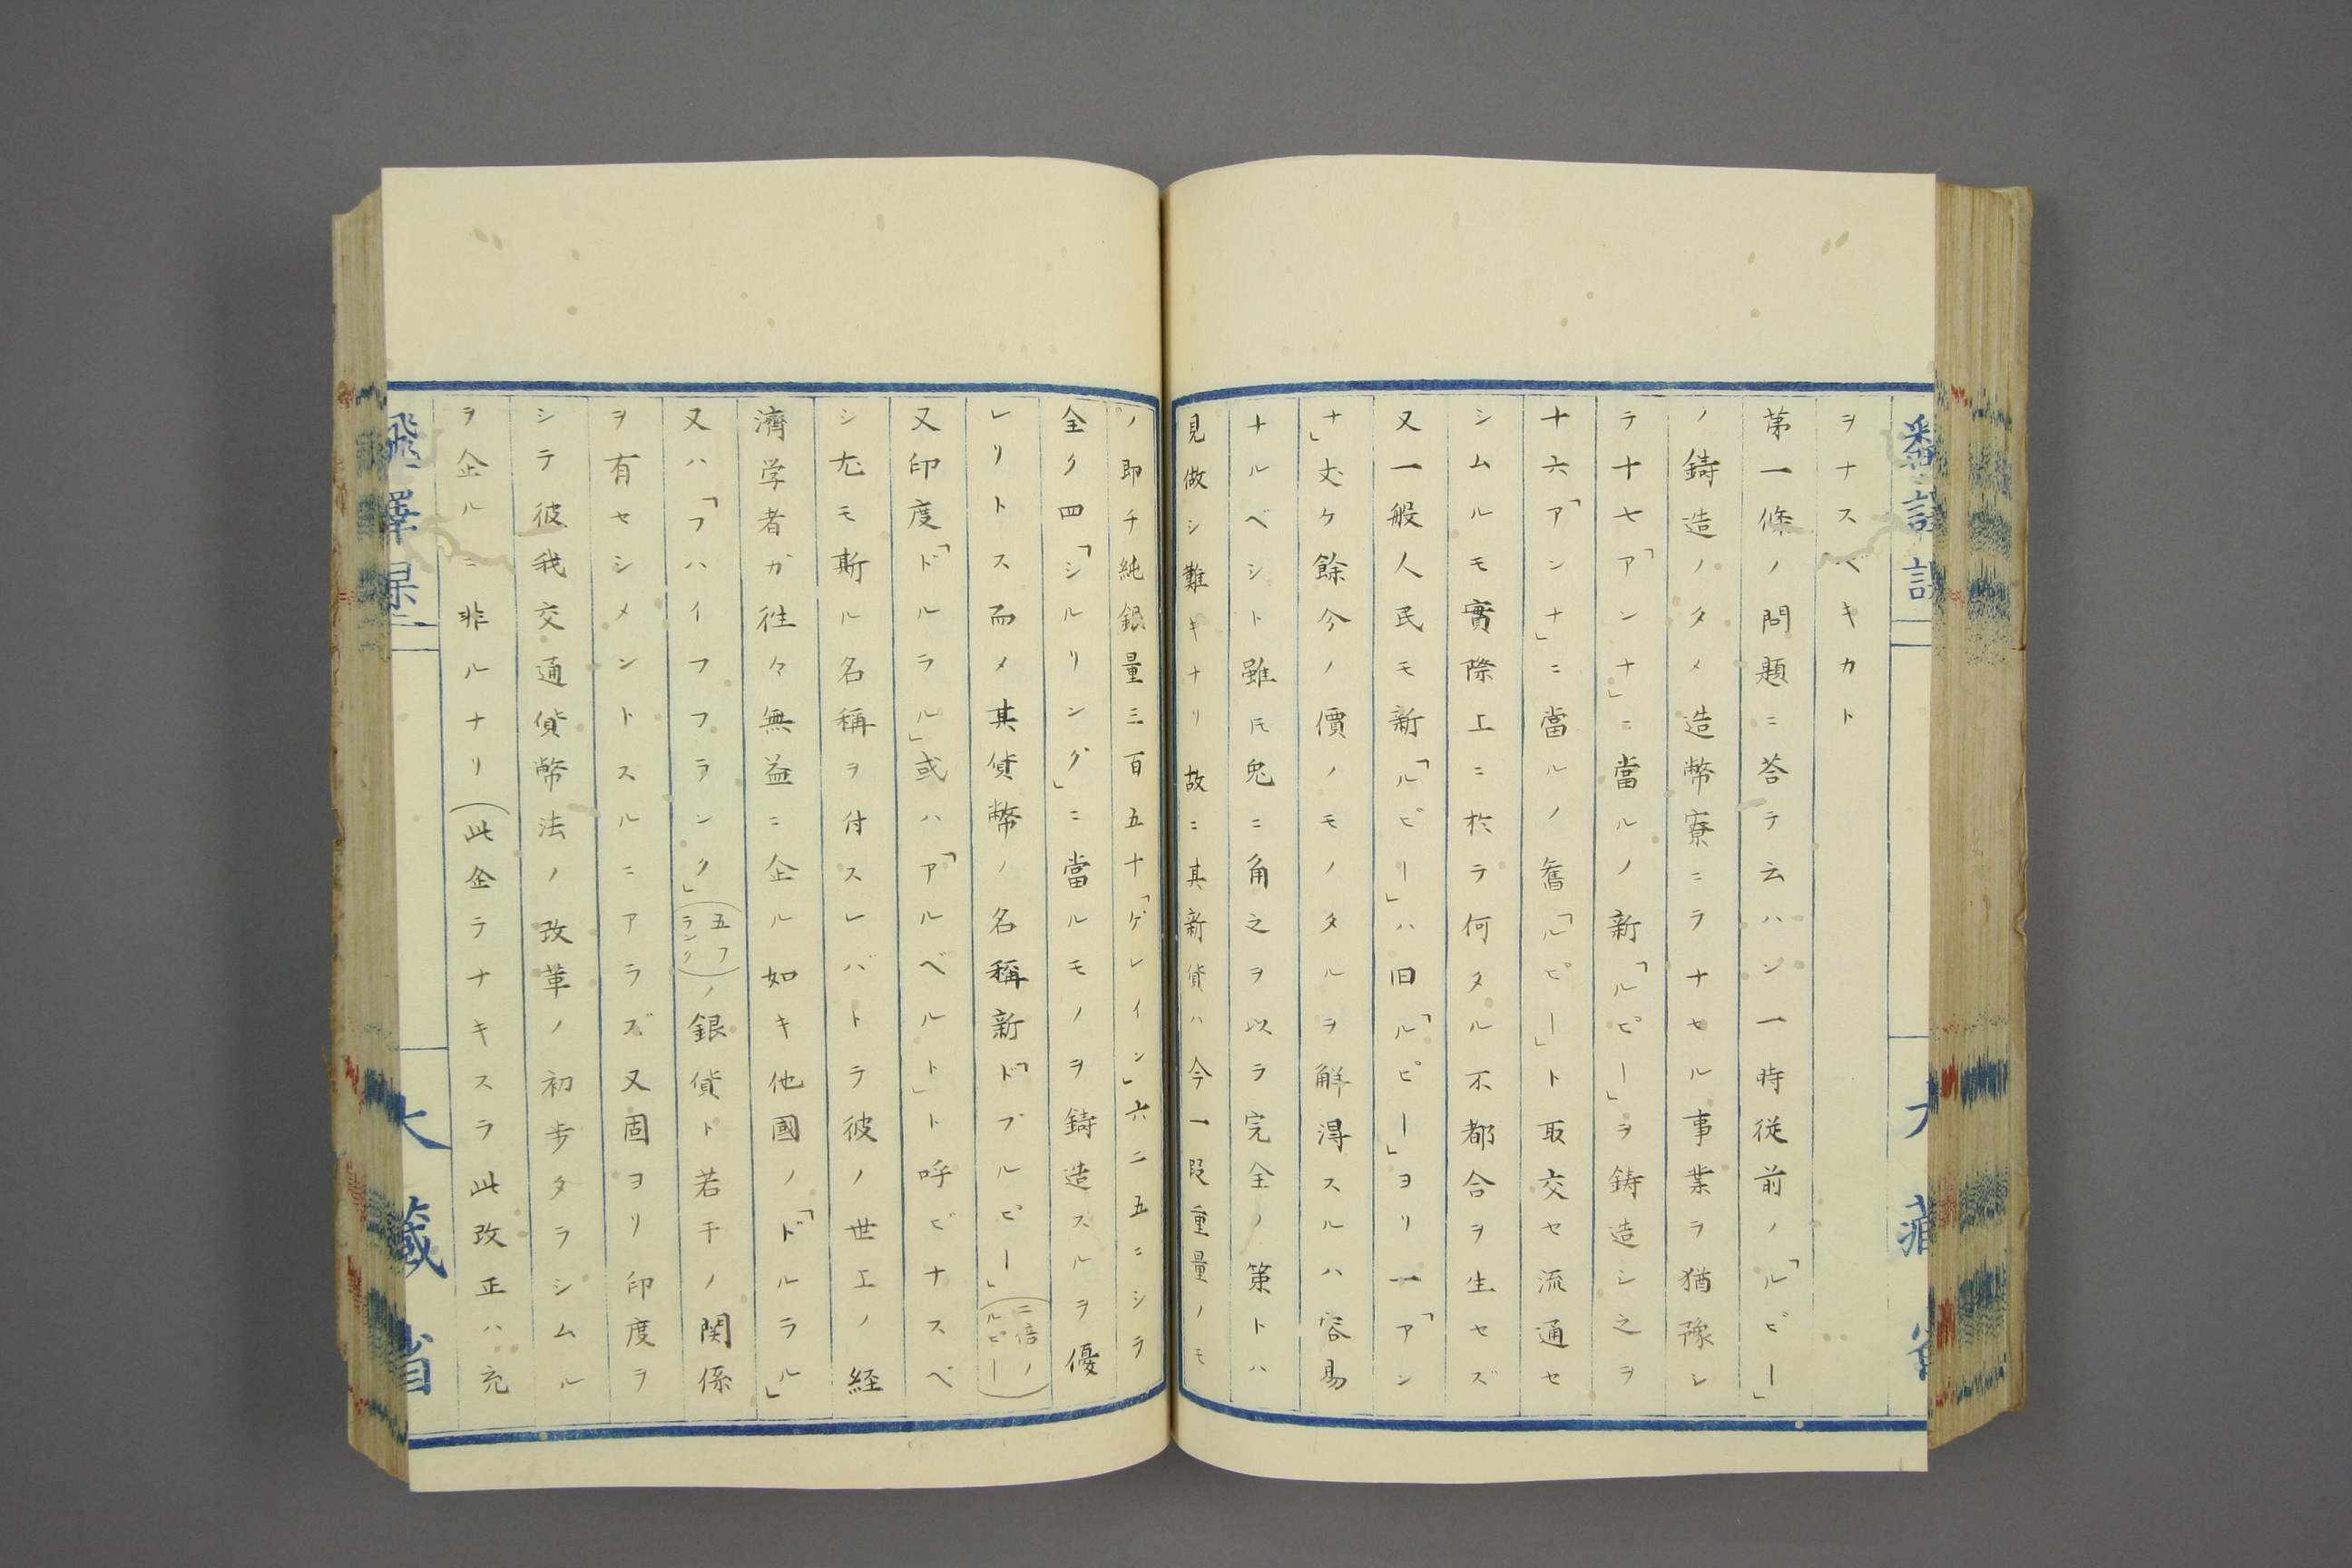 ヲナスベキカト
第一條ノ問題ニ荅テ云ハン一時従前ノ「ルピー」
ノ鋳造ノタメ造幣寮ニラナセル事業ヲ猶豫シ
テ十七「アンナ」ニ當ルノ新「ルピー」ヲ鋳造シ之ヲ
十六「アンナ」ニ當ルノ舊「ルピー」ト取交セ流通セ
シムルモ實際上ニ於テ何タル不都合ヲ生セズ
又一般人民モ新「ルピー」ハ旧「ルピー」ヨリ一「アン
ナ」丈ケ餘分ノ價ノモノタルヲ解得スルハ容易
ナルベシト雖ㇳモ兎ニ角之ヲ以テ完全ノ策トハ
見做シ難キナリ故ニ其新貨ハ今一段重量ノモ
ノ即チ純銀量三百五十「ゲレイン」六二五ニシテ
全ク四「シルリング」ニ當ルモノヲ鋳造スルヲ優
レリトス而メ其貨幣ノ名稱新「ドブルピー」(二倍ノルピー)
又印度「ドルラル」或ハ「アルベルト」ト呼ビナスベ
シ尤モ斯ル名稱ヲ付スレバトテ彼ノ世上ノ経
濟学者ガ徃々無益ニ企ル如キ他國ノ「ドルラル」
又ハ「フハイフフランク」(五フランク)ノ銀貨ト若干ノ関係
ヲ有セシメントスルニアラズ又固ヨリ印度ヲ
シテ彼我交通貨幣法ノ改革ノ初歩タラシムル
ヲ企ルニ非ルナリ(此企テナキスラ此改正ハ充
大藏省